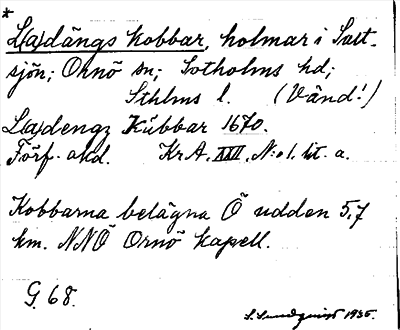 *
L(a)dängs kobbar, holmar i Salt-
sjön; Ornö sn; Sotholms hd;
Sthlms l. (Vänd!)
L(a)dengz Kübbar 1670.
Förf. akd. Kr A. XXII, N:o 1. lit. a.
Kobbarna belägna Ö udden 5,7
km. NNÖ Ornö kapell.
G. 68.
S. Sundquist 1935.